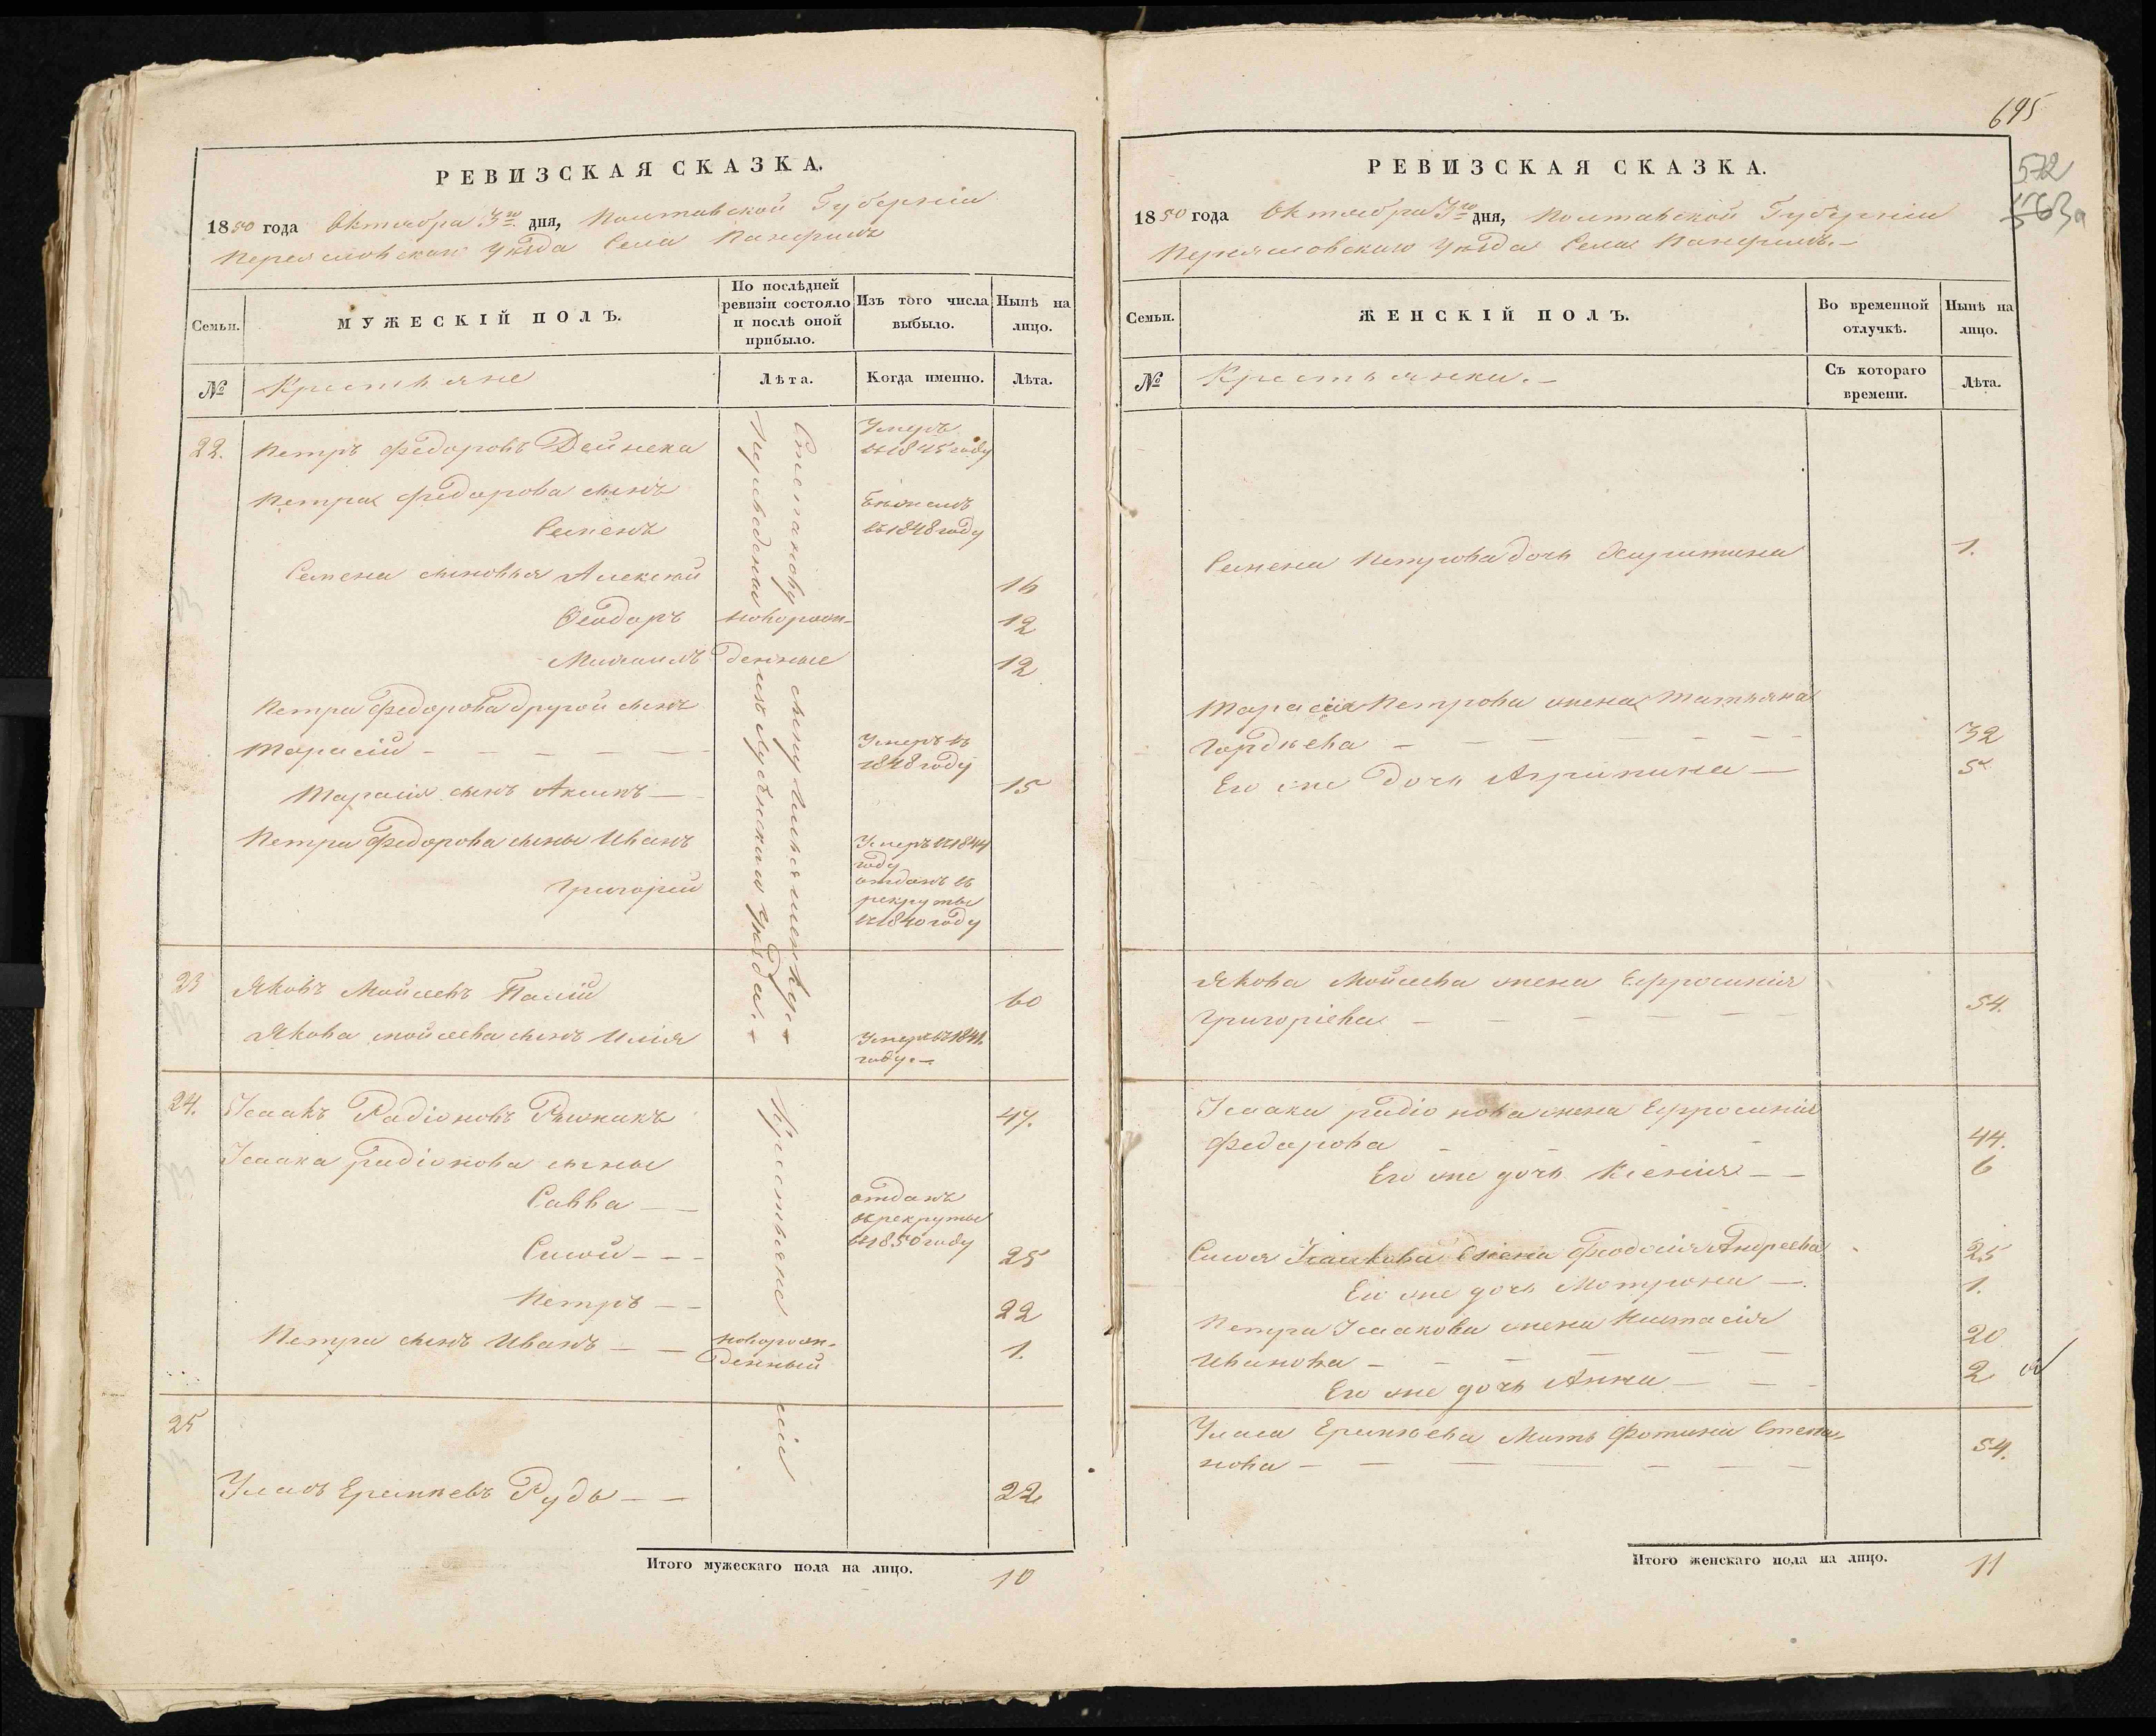 РЕВИЗСКАЯ СКАЗКА.
1850 года Октября 3го дня, Полтавской Губерніи
Переясловскаго Уѣзда Села Панфилъ
Семьи.
МУЖЕСКІЙ ПОЛЪ.
По послѣдней
ревизіи состояло
и послѣ оной
прибыло.
Изъ того числа
выбыло.
Нынѣ на
лицо.
№
Крестьяне
Лѣта.
Когда именно.
Лѣта.
22.
Петръ Федоровъ Дейнека
Умеръ
въ 1845 году
Петра Федорова сынъ
Семенъ
въ 1848 году
Семена сыновья Алексѣй
16
Феодоръ
новорож-
12
Михаилъ
денные
12
Петра Федорова другой сынъ
Тарасій
Умеръ въ
1848 году
Тарасія сынъ Акимъ
15
Петра Федорова сыны Иванъ
Умеръ въ 1844
году
Григорій
отданъ въ
рекруты
въ 1840 году
23
Яковъ Мойсеевъ Палій
60
Якова Мойсеева сынъ Илія
Умеръ въ 1841.
году.
24.
Исаакъ Радіоновъ
47.
Исаака Радіонова сыны
Савва
отданъ
въ рекруты
въ 1850 году
Сисой
25
Петръ
22
Петра сынъ Иванъ
новорож-
денный
1.
25
Уласъ Еремѣевъ Рудь
22
Крестьяне
Итого мужескаго пола на лицо.
10
695
572
563а
РЕВИЗСКАЯ СКАЗКА.
1850 года Октября 3го дня, Полтавской Губерніи
Переясловскаго Уѣзда Села Панфилъ.
Семьи.
ЖЕНСКІЙ ПОЛЪ.
Во временной
отлучкѣ.
Нынѣ на
лицо.
№
Крестьянки.
Съ котораго
времени.
Лѣта.
Семена Петрова дочь Харитина
1.
Тарасія Петрова жена Татьяна
Гордѣева
32
Его же дочь Агрипина
5
Якова Мойсеева жена Ефросинія
Григоріева
54.
Исаака Радіонова жена Ефросинія
Федорова
44.
Его же дочь Ксенія
6
Сисоя Исаакова жена Феодосія Андреева
25
Его же дочь Мотрона
1.
Петра Исаакова жена Настасія
Иванова
20
Его же дочь Анна
2
Уласа Еремѣева Мать Фотинія Степа-
нова
54.
Итого женскаго пола на лицо.
11